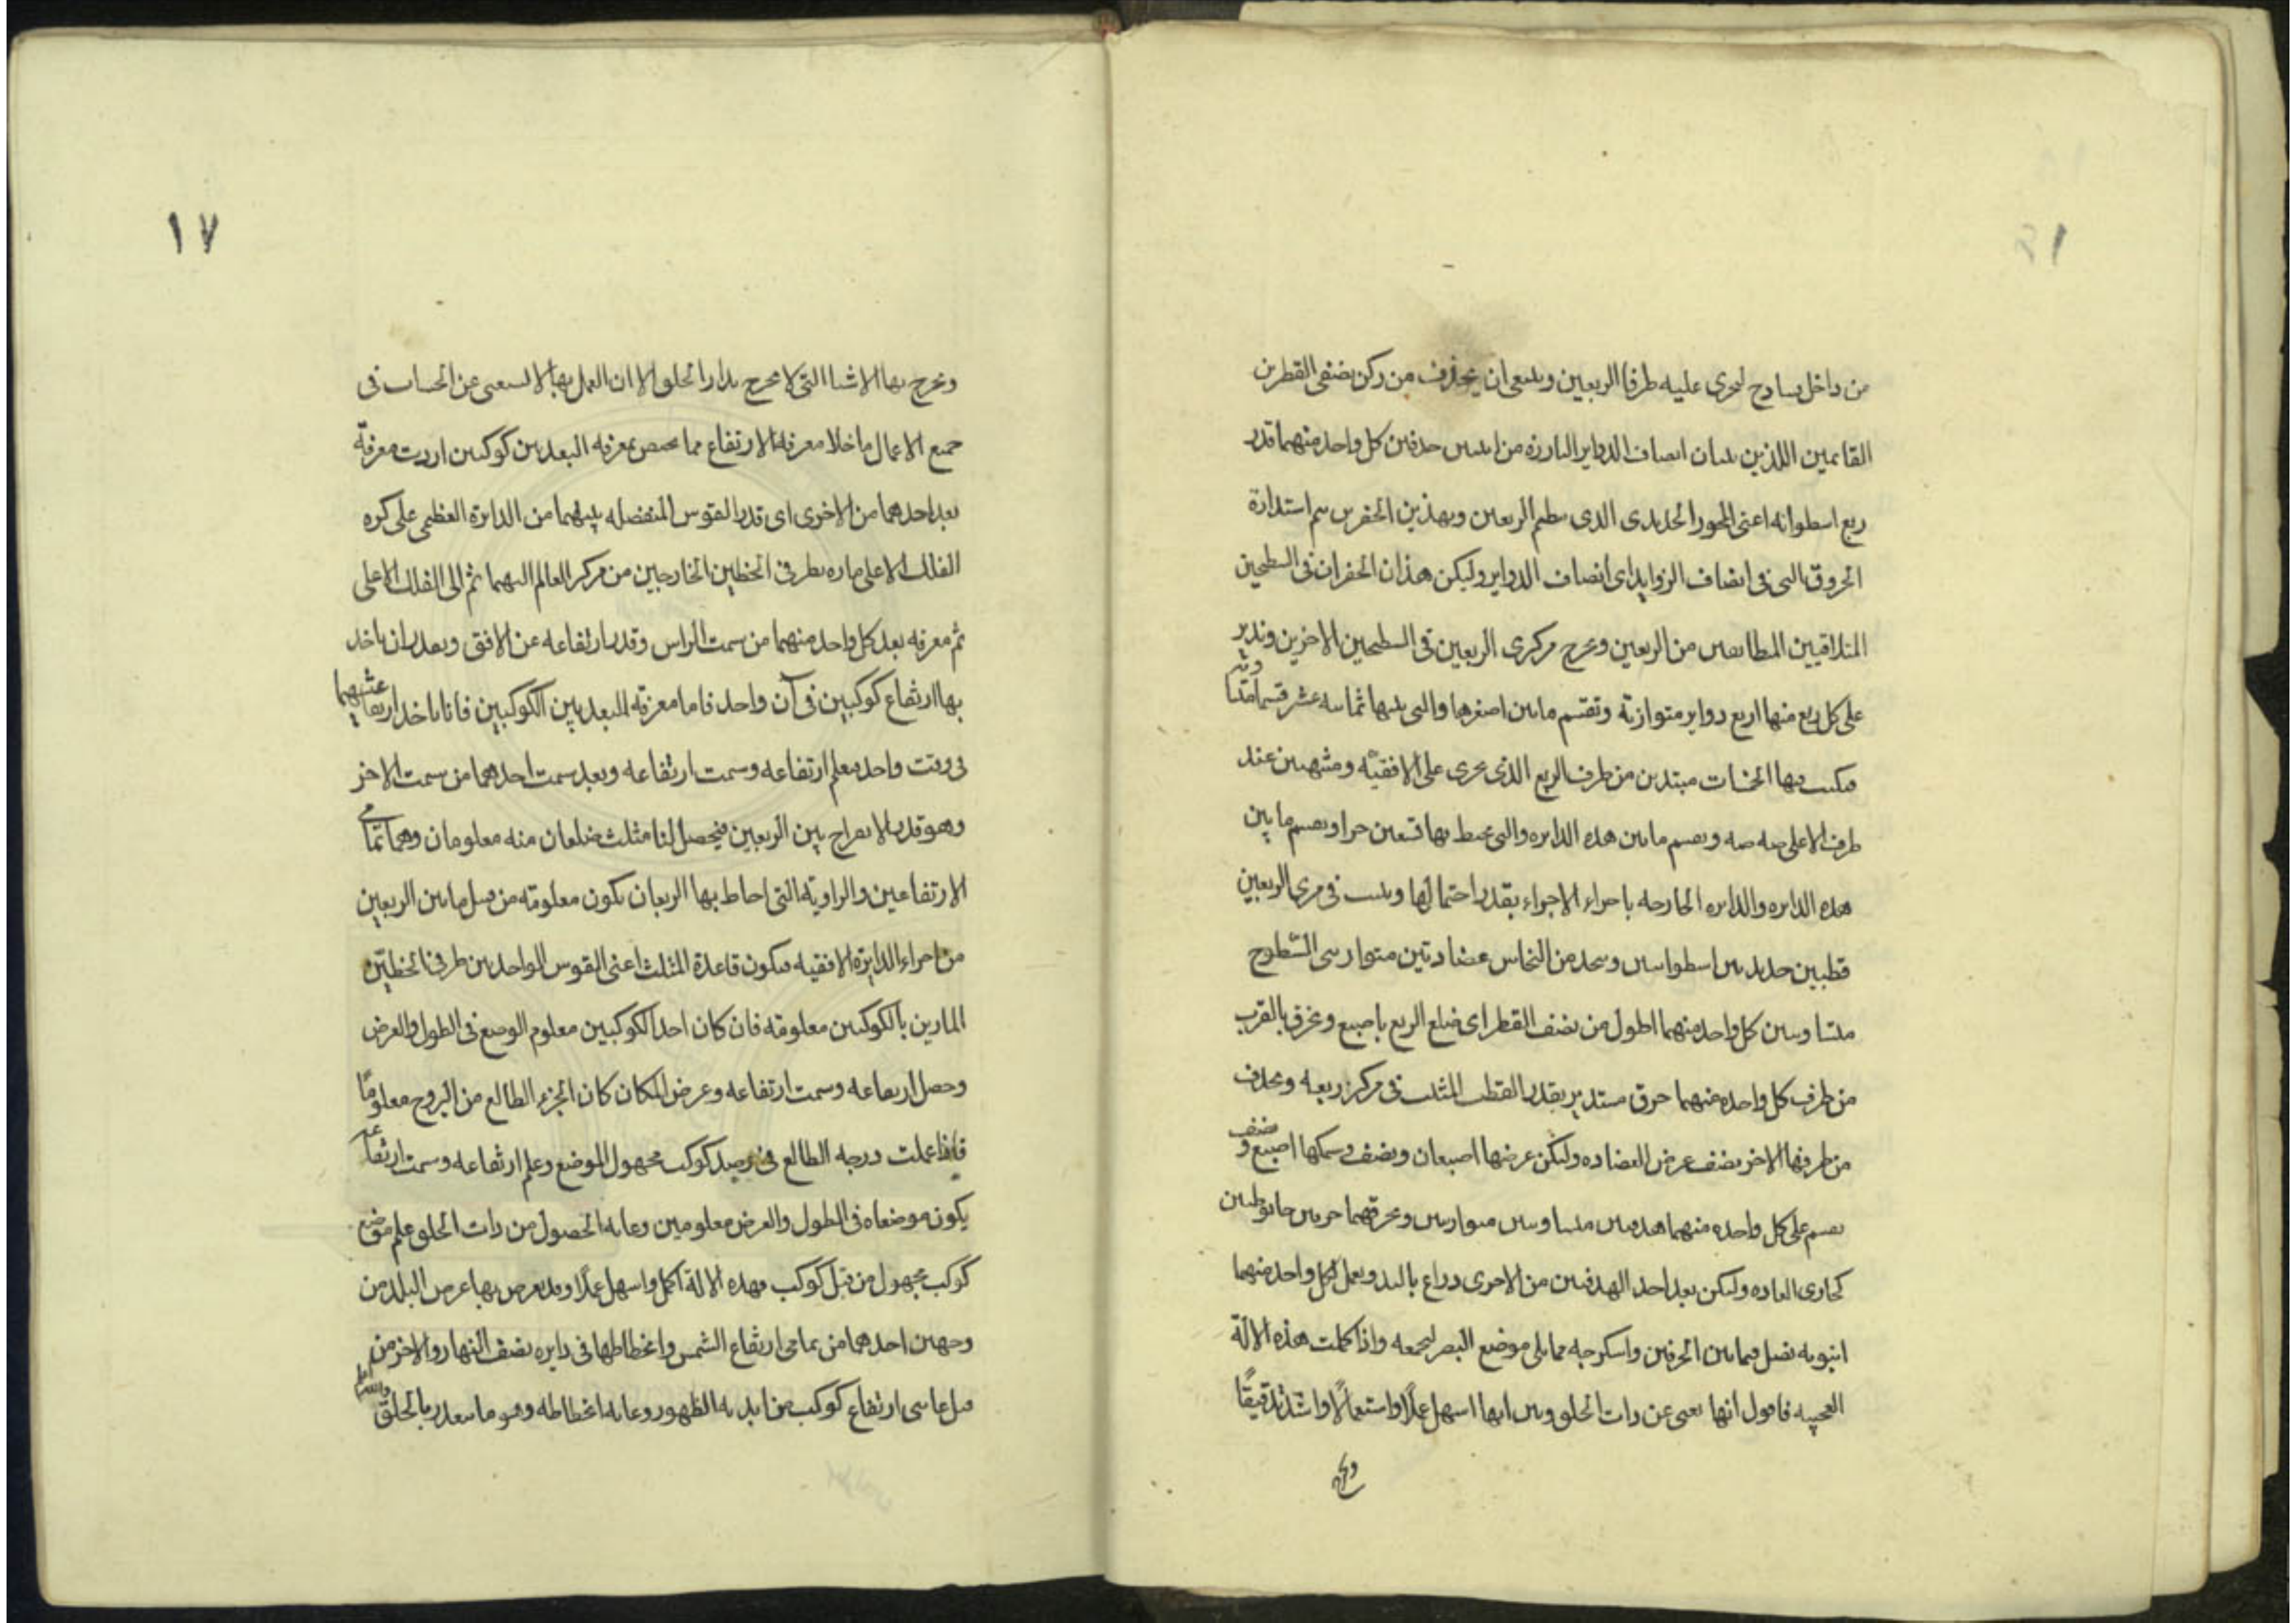 من داخل ساذج لىجرى عليه طرفا الربعين وىىىغى ان يحذف من ركن نصفى القطرين
القايمين اللذين ىىىان انصاف الدواير البارزة من اىىىن حدفين كل واحد منهما قدر
ربع اسطوانه اعنى المحور الحديدى الذى ىىظم الربعين وبهذين الحفرىن ىىم استدارة
الخروق التى فى انصاف الزوايد اى انصاف الدواير وليكن هذان الحفران فى السطحين
المتلاقيين المطابقين من الربعين وىخرج مركزى الربعين فى السطحين الاخرين وندير
على كل ربع منها اربع دواير متوازية ونقسم مابين اصغرها والتى ىلىها ثمانىه عشر قسما متساوية
فىكىب فىها الخمسات مبتدىن من طرف الربع الذى ىجرى على الافقية ومنتهىىن عند
طرف الاعلى صه صه وىقسم مابىن هذه الدايره والتى ىحىط بها تسعىن جزا وىقسم ما بين
هذه الدايره والدايره الخارجه باجزاء الاجزاء بقدر احتمالها وىثبت فى مركزى الربعين
قطبين حديدىىن اسطوانىىن وىىخذ من النحاس عضادتين متوازىىى السطوح
متساوىىىن كل واحد منهما اطول من نصف القطر اى ضلع الربع باصبع ونخرق بالقرب
من طرف كل واحده منهما خرق مستدير بقدر القطب المثبت فى مركز ربعه وىحذف
من طرفها الاخر نصف عرض العضاده وليكن عرضها اصبعان ونصف وسمكها اصبع ونصف
ىقىم على كل واحده منهما هدفىن متساوىىن متوازىىن وىخرقهما خرىىن حانوطىىن
كجارى العاده وليكن بعد احد الهدفىن من الاخرى ذراع بالىد وىعمل لكل واحد منهما
انبوبه ىصل فىمابىن الخرقين واسكرجه مماىلى موضع البصر لىجمعه واذا كملت هذه الالة
العجيبه فاقول انها ىغنى عن ذات الحلق وىىن انها اسهل عملًا واستعمالًا واشد تدقيقًا
وىخرج
وىخرج بها الاشىا التى لا ىخرج بذات الحلق الا ان العمل بها لا ىسىغنى عن الحساب فى
جمىع الاعمال ما خلا معرفة الارتفاع مما ىخىص بمعرفه البعد بىن كوكبىن اردت معرفة
بعد احدهما من الاخرى اى قدر القوس المنفصله بينهما من الدايرة العظمى على كره
الفلك الاعلى ماره بطرفى الخطين الخارجين من مركز العالم الىهما ثم الى الفلك الاعلى
ثم معرفه بعد كل واحد منهما من سمت الراس وقدر ارتفاعه عن الافق وىعد ان ىاخذ
بها ارتفاع كوكبين فى آن واحد فاما معرفة البعد بين الكوكبين فانا ىاخذ ارتفاعيهما
فى وقت واحد فىعلم ارتفاعه وسمت ارتفاعه وبعد سمت احدهما من سمت الاخر
وهو قدر الانفراج بين الربعين فيحصل لنا مثلث ضلعان منه معلومان وهما تمامى
الارتفاعين والزاوية التى احاط بها الربعان ىكون معلومة من قىل ما بىن الربعين
من اجزاء الدايرة الافقيه فىكون قاعدة المثلث اعنى القوس الواحد بىن طرفى الخطين
المارين بالكوكبىن معلومة فان كان احد الكوكبين معلوم الوضع فى الطول والعرض
وحصل ارىفاعه وسمت ارتفاعه وعرض المكان كان الجزء الطالع من البروج معلومًا
فاذا علمت درجه الطالع فى رصد كوكب مجهول الموضع وعلم ارتفاعه وسمت ارتفاعه
يكون موضعاه فى الطول والعرض معلومين وغاىه الحصول من ذات الحلق علم موضع
كوكب مجهول من قبل كوكب فهذه الالة اكمل واسهل عملًا وقد ىعرض بها عرض البلد من
وجهىن احدهما من ىمامى ارتفاع الشمس وانحطاطها فى دايره نصف النهار والاخر من
قىل غاىىى ارتفاع كوكب من ابديه الظهور وغايه انحطاطه وهو ما ىىعذر بالحلق